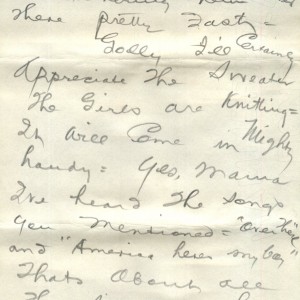 there pretty Fasty =
Golly I'll Certainly
Appreciate The Sweater
The Girls are Knitting =
It will Come in Mighty
handy = Yes, Mama
I've heard The Songs
you Mentioned = "Over There"
and "America heres my boy"
Thats About all